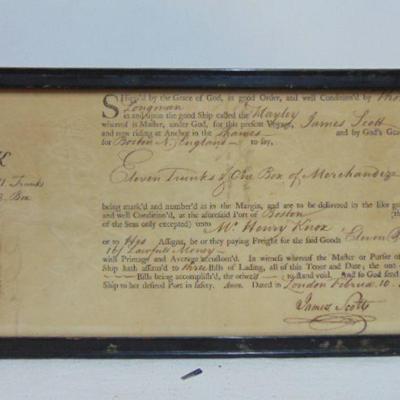 Shipp'd by the Grace of God, in good Order, and well Condition'd by Tho
Longman
in and upon the good Ship called the Hayley
whereof is Master, under God, for this present Voyage, James Scott
and now riding at Anchor in the Thames and by God's Gra
for Boston N. England to say,
K
11 Trunks
Box
Eleven Trunks & One Box of Merchandize
being mark'd and number'd as in the Margin, and are to be delivered in the like good
and well Condition'd, at the aforesaid Port of Boston
of the Seas only excepted) unto Mr. Henry Knox
or to His Assigns, he or they paying Freight for the said Goods Eleven
16/ Lawfull Money
with Primage and Average accustom'd. In witness whereof the Master or Purser of
Ship hath affirm'd to three Bills of Lading, all of this Tenor and Date; the one of
Bills being accomplish'd, the other to stand void. And so God send
Ship to her desired Port in safety. Amen. Dated in London Febru 10.
James Scott